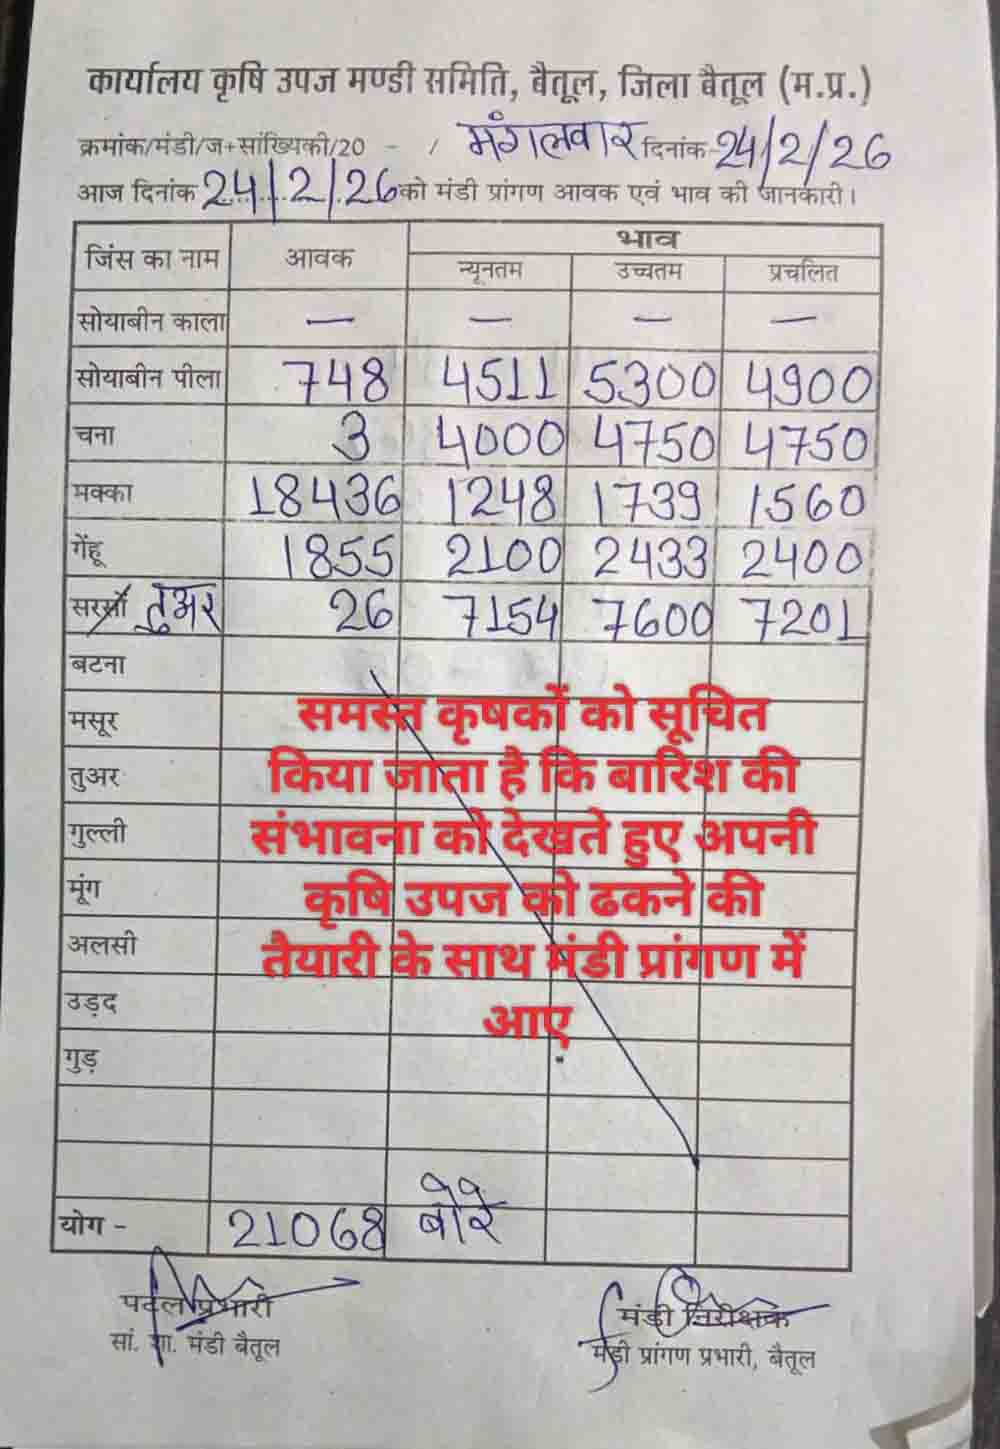 कार्यालय कृषि उपज मण्डी समिति, बैतूल, जिला बैतूल (म.प्र.)
क्रमांक/मंडी/ज+सांख्यिकी/20 - / मंगलवार दिनांक 24/2/26
आज दिनांक 24/2/26 को मंडी प्रांगण आवक एवं भाव की जानकारी।
जिंस का नाम आवक भाव
न्यूनतम उच्चतम प्रचलित
सोयाबीन काला — — — —
सोयाबीन पीला 748 4511 5300 4900
चना 3 4000 4750 4750
मक्का 18436 1248 1739 1560
गेंहू 1855 2100 2433 2400
सरसों तुअर 26 7154 7600 7201
बटना
मसूर
तुअर
गुल्ली
मूंग
अलसी
उड़द
गुड़
समस्त कृषकों को सूचित
किया जाता है कि बारिश की
संभावना को देखते हुए अपनी
कृषि उपज को ढकने की
तैयारी के साथ मंडी प्रांगण में
आए
योग - 21068 बोरे
प्रभारी
सां. शा. मंडी बैतूल
मंडी निरीक्षक
मंडी प्रांगण प्रभारी, बैतूल